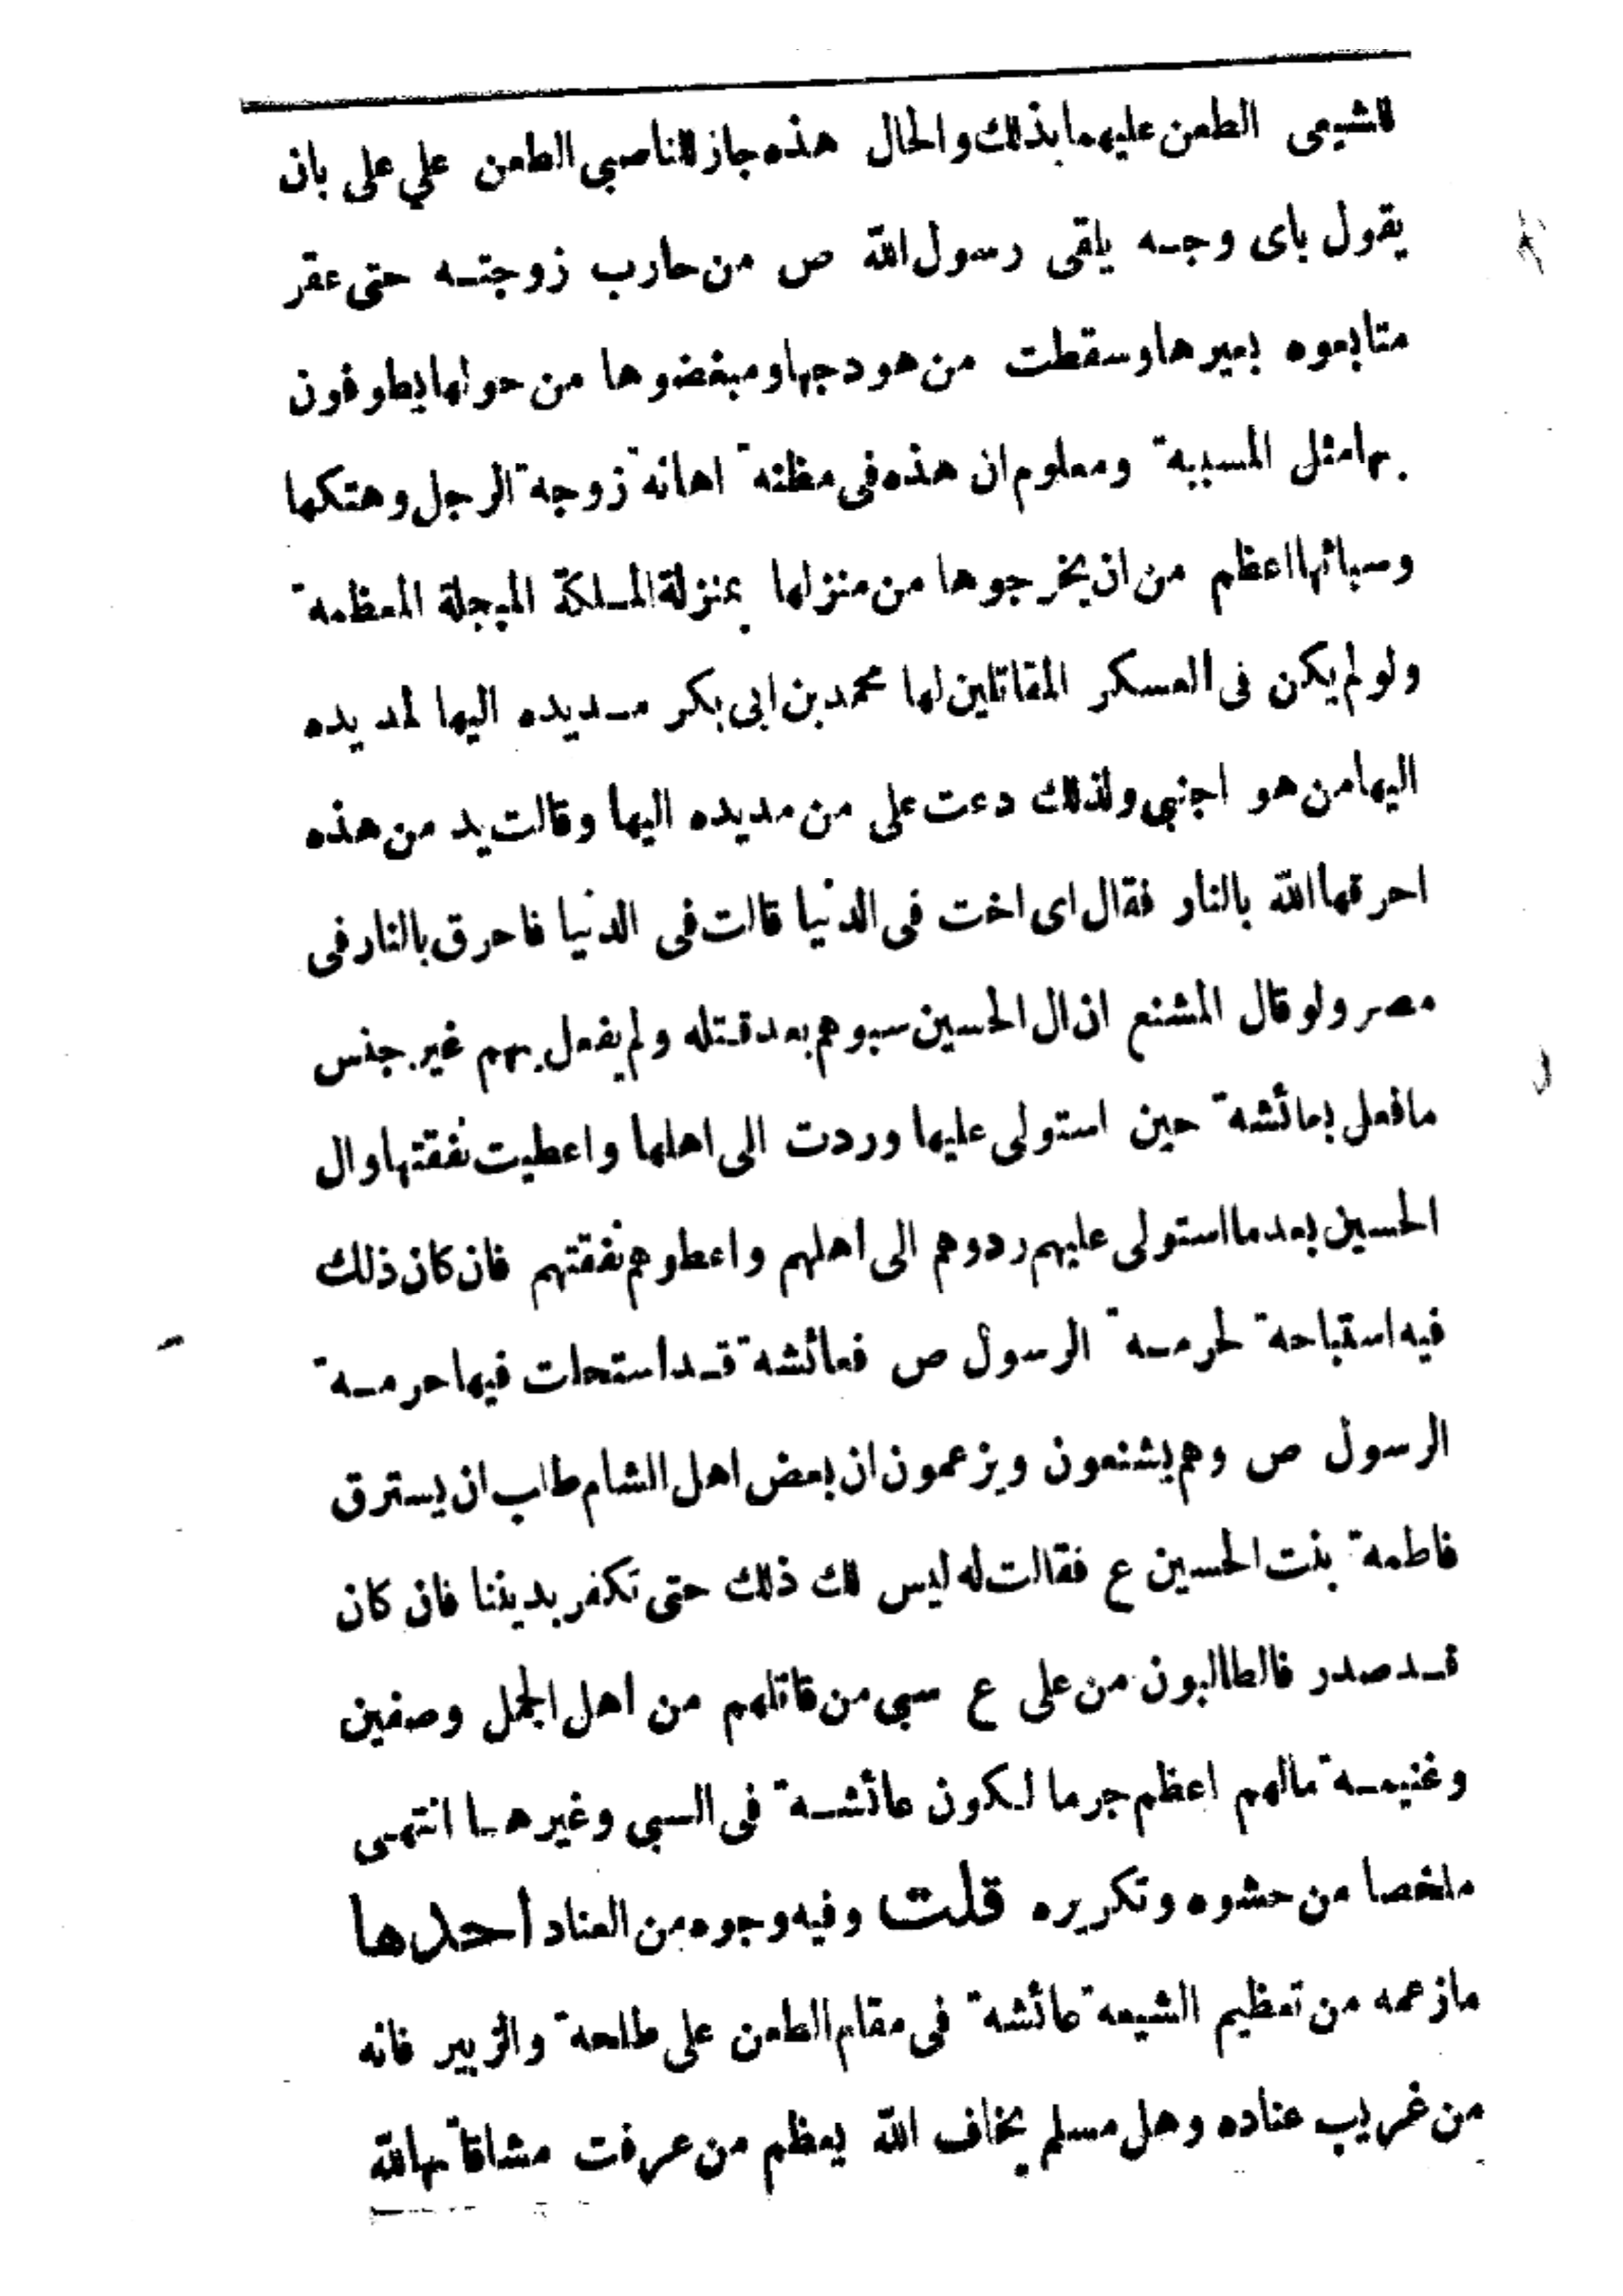 للشيعى الطعن عليهما بذلك والحال هذه جاز للناصبى الطعن علي على بان
يقول باى وجه يلقى رسول الله ص من حارب زوجته حتى عقر
متابعوه بعيرها وسقطت من هودجها ومبغضوها من حولها يطوفون
بها مثل المسبية ومعلوم ان هذه فى مظنة اهانة زوجة الرجل وهتكها
وسبائها اعظم من ان يخرجوها من منزلها بمنزلة الملكة المبجلة المعظمة
ولو لم يكن فى العسكر المقاتلين لها محمد بن ابى بكر مد يده اليها لمد يده
اليها من هو اجنبي ولذلك دعت على من مد يده اليها وقالت يد من هذه
احرقها الله بالنار فقال اى اخت فى الدنيا قالت فى الدنيا فاحرق بالنار فى
مصر ولو قال المشنع ان ال الحسين سبوهم بعد قتله ولم يفعل بهم غير جنس
ما فعل بعائشة حين استولى عليها وردت الى اهلها واعطيت نفقتها وال
الحسين بعد ما استولى عليهم ردوهم الى اهلهم واعطوهم نفقتهم فان كان ذلك
فيه استباحة لحرمة الرسول ص فعائشة قد استحلت فيها حرمة
الرسول ص وهم يشنعون ويزعمون ان بعض اهل الشام طلب ان يسترق
فاطمة بنت الحسين ع فقالت له ليس لك ذلك حتى تكفر بديننا فان كان
قد صدر فالطالبون من على ع سبى من قاتلهم من اهل الجمل وصفين
وغنيمة مالهم اعظم جرما لكون عائشة فى السبى وغيرها انتهى
ملخصا من حشوه وتكريره قلت وفيه وجوه من العناد احدها
ما زعمه من تعظيم الشيعة عائشة فى مقام الطعن على طلحة والزبير فانه
من غريب عناده وهل مسلم يخاف الله يعظم من عرفت مشاقاتها لله